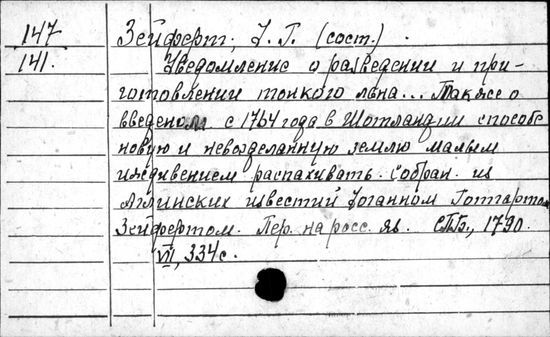 147 Зейферт, І. Г. (сост.)
141. Уведомление о разведении и при-
готовлении тонкого льна... Также о
введеном с 1764 года в Шотландии способе
новую и невозделанную землю малым
иждивением распахивать. Собран. из
Аглинских известий Іоганном Готгартом
Зейфертом. Пер. на росс. яз. СПБ., 1790.
VII, 334 с.